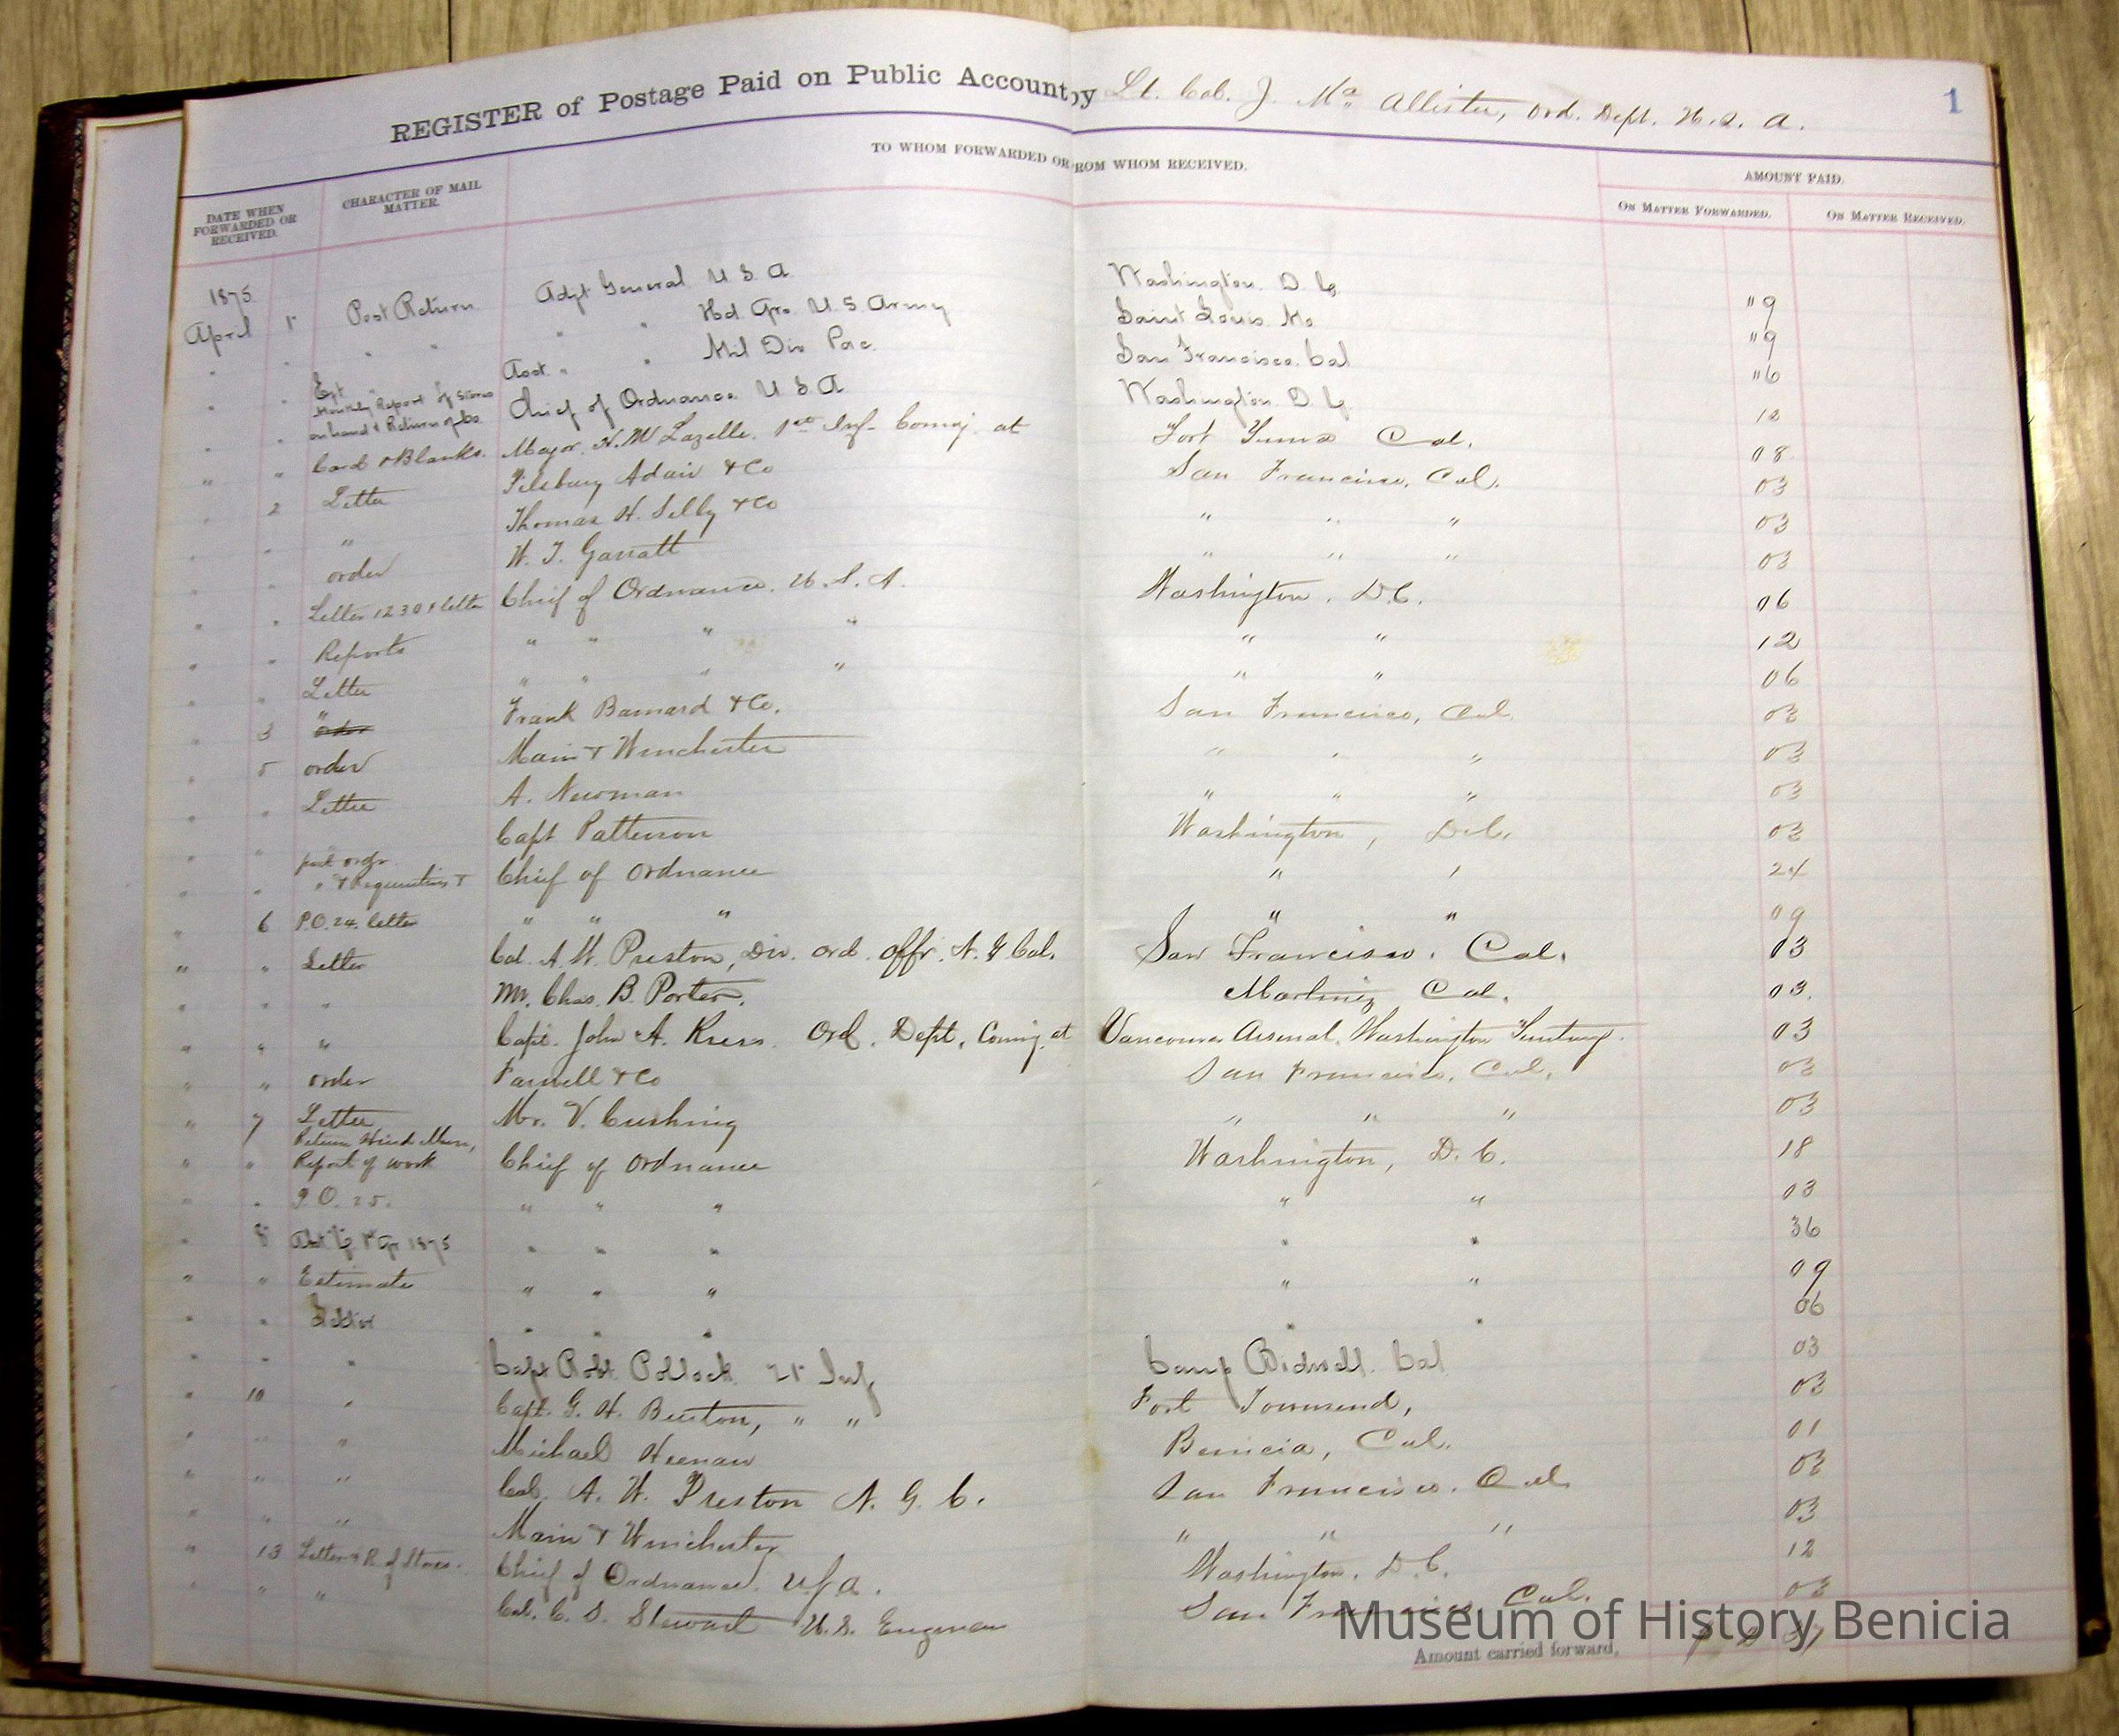 REGISTER of Postage Paid on Public Account by Lt. Col. J. McAllister, Ord. Dept. U.S.A. 1
TO WHOM FORWARDED OR FROM WHOM RECEIVED.
AMOUNT PAID.
DATE WHEN FORWARDED OR RECEIVED.
CHARACTER OF MAIL MATTER.
ON MATTER FORWARDED.
ON MATTER RECEIVED.
1875
April 1 Post Return Adjt General U S A Washington. D. C. " 9
" " " " " " Hd Qrs. U. S Army Saint Louis Mo " 9
" " " Asst. " " Mil Div Pac. San Francisco. Cal " 6
" " Monthly Report of Stores on hand & Return of Co. Chief of Ordnance. U S A Washington D. C. 12
" " Card & Blanks. Major. H. M Lazelle. 1st Inf. Comg. at Fort Yuma Cal. 08
" 2 Letter Pilsbury Adair & Co San Francisco, Cal. 03
" " " Thomas H. Selby & Co " " " 03
" " order W. T. Garratt " " " 03
" " Letter 1230 & letter Chief of Ordnance. U. S. A. Washington. D.C. 06
" " Reports " " " " " " 12
" " Letter " " " " " " 06
" 3 " Frank Barnard & Co. San Francisco, Cal 03
" 5 order Main & Winchester " " " 03
" " Letter A. Newman " " " 03
" " Capt Patterson Washington, D.C. 03
" " & Requisitions & Chief of Ordnance " " 24
" 6 P.O. 24. letter " " " " " 09
" " Letter Col. A. W. Preston, Div. Ord. Offr. N. G Cal. San Francisco. Cal. 03
" " " Mr. Chas. B. Porter. Martinez Cal. 03.
" " " Capt. John A. Kress. Ord. Dept, Comg. at Vancouver Arsenal, Washington Territory. 03
" " order Farwell & Co San Francisco, Cal. 03
" 7 Letter Mr. V. Cushing " " " 03
" " Report of work Chief of Ordnance Washington, D. C. 18
" " P.O. 25. " " " " " 03
" 8 1875 " " " " " 36
" " Estimate " " " " " 09
" " Letter " " " " " 06
" " " Capt Robt. Pollock 21st Inf Camp Bidwell. Cal 03
" 10 " Capt. G. H. Burton, " " Fort Townsend, 03
" " " Michael Heenan Benicia, Cal. 01
" " " Col. A. W. Preston N. G. C. San Francisco. Cal 03
" " " Main & Winchester " " " 03
" 13 Letter & R. of Stores. Chief of Ordnance. U.S.A. Washington. D.C. 12
" " " Col. C. S. Stewart U.S. Engineer San Francisco Cal. 03
Amount carried forward,
Museum of History Benicia